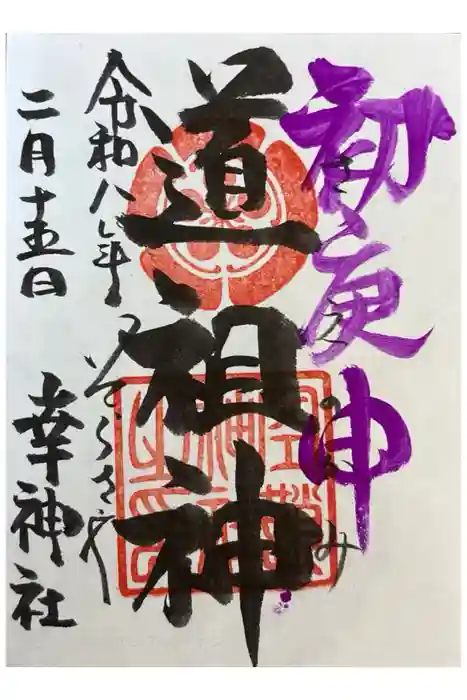 初庚申
さえのかみ
道祖神
令和八年
二月十五日
幸神社